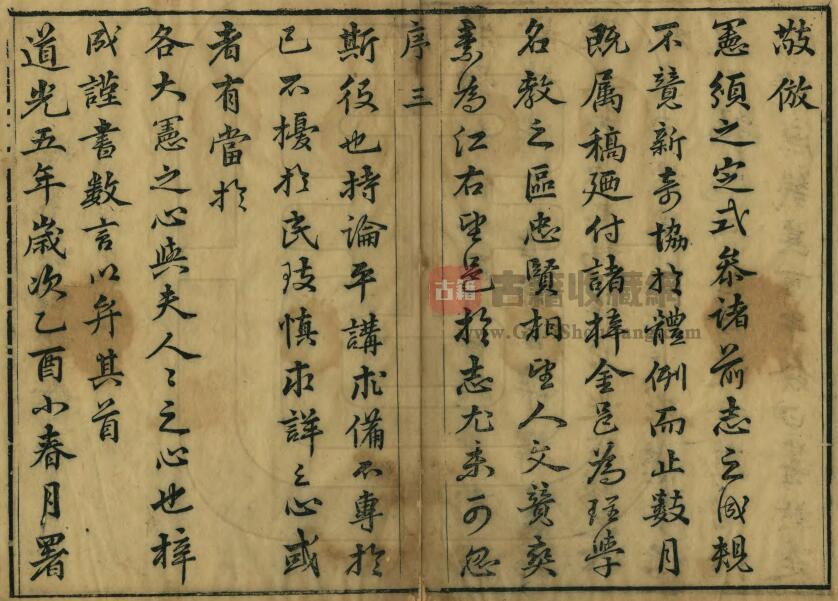 敬倣
憲頒之定式叅諸前志之成規
不競新奇協於體例而止數月
既属稿廼付諸梓金邑為理學
名教之區忠賢相望人文競爽
素為江右望邑於志尤未可忽
序 三
斯役也持論平講求備不專於
己不擾於民玆慎求詳之心或
者有當於
各大憲之心與夫人〻之心也梓
成謹書數言以弁其首
道光五年歲次乙酉小春月署
古籍
古籍收藏網